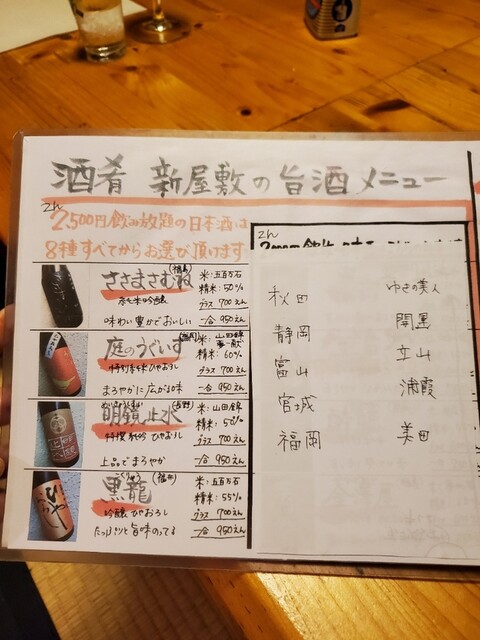 酒肴 新屋敷の旨酒メニュー
2,500円飲み放題の日本酒は
8種すべてからお選び頂けます
ささまさむね (福島)
米:五百万石
精米:50%
グラス 700えん
味わい豊かでおいしい
一合 950えん
庭のうぐいす
米:山田錦
精米:60%
特別純米ひやおろし
グラス 700えん
まろやかに広がるお味
一合 950えん
明鏡止水 (長野)
米:山田錦
精米:50%
ひやおろし
グラス 700えん
上品でまろやか
一合 950えん
こくりゅう
黒龍 (福井)
米:五百万石
精米:55%
吟醸ひやおろし
グラス 700えん
たっぷりと旨味のってる
一合 950えん
秋田 ゆきの美人
静岡 開運
富山 立山
宮城 浦霞
福岡 美田